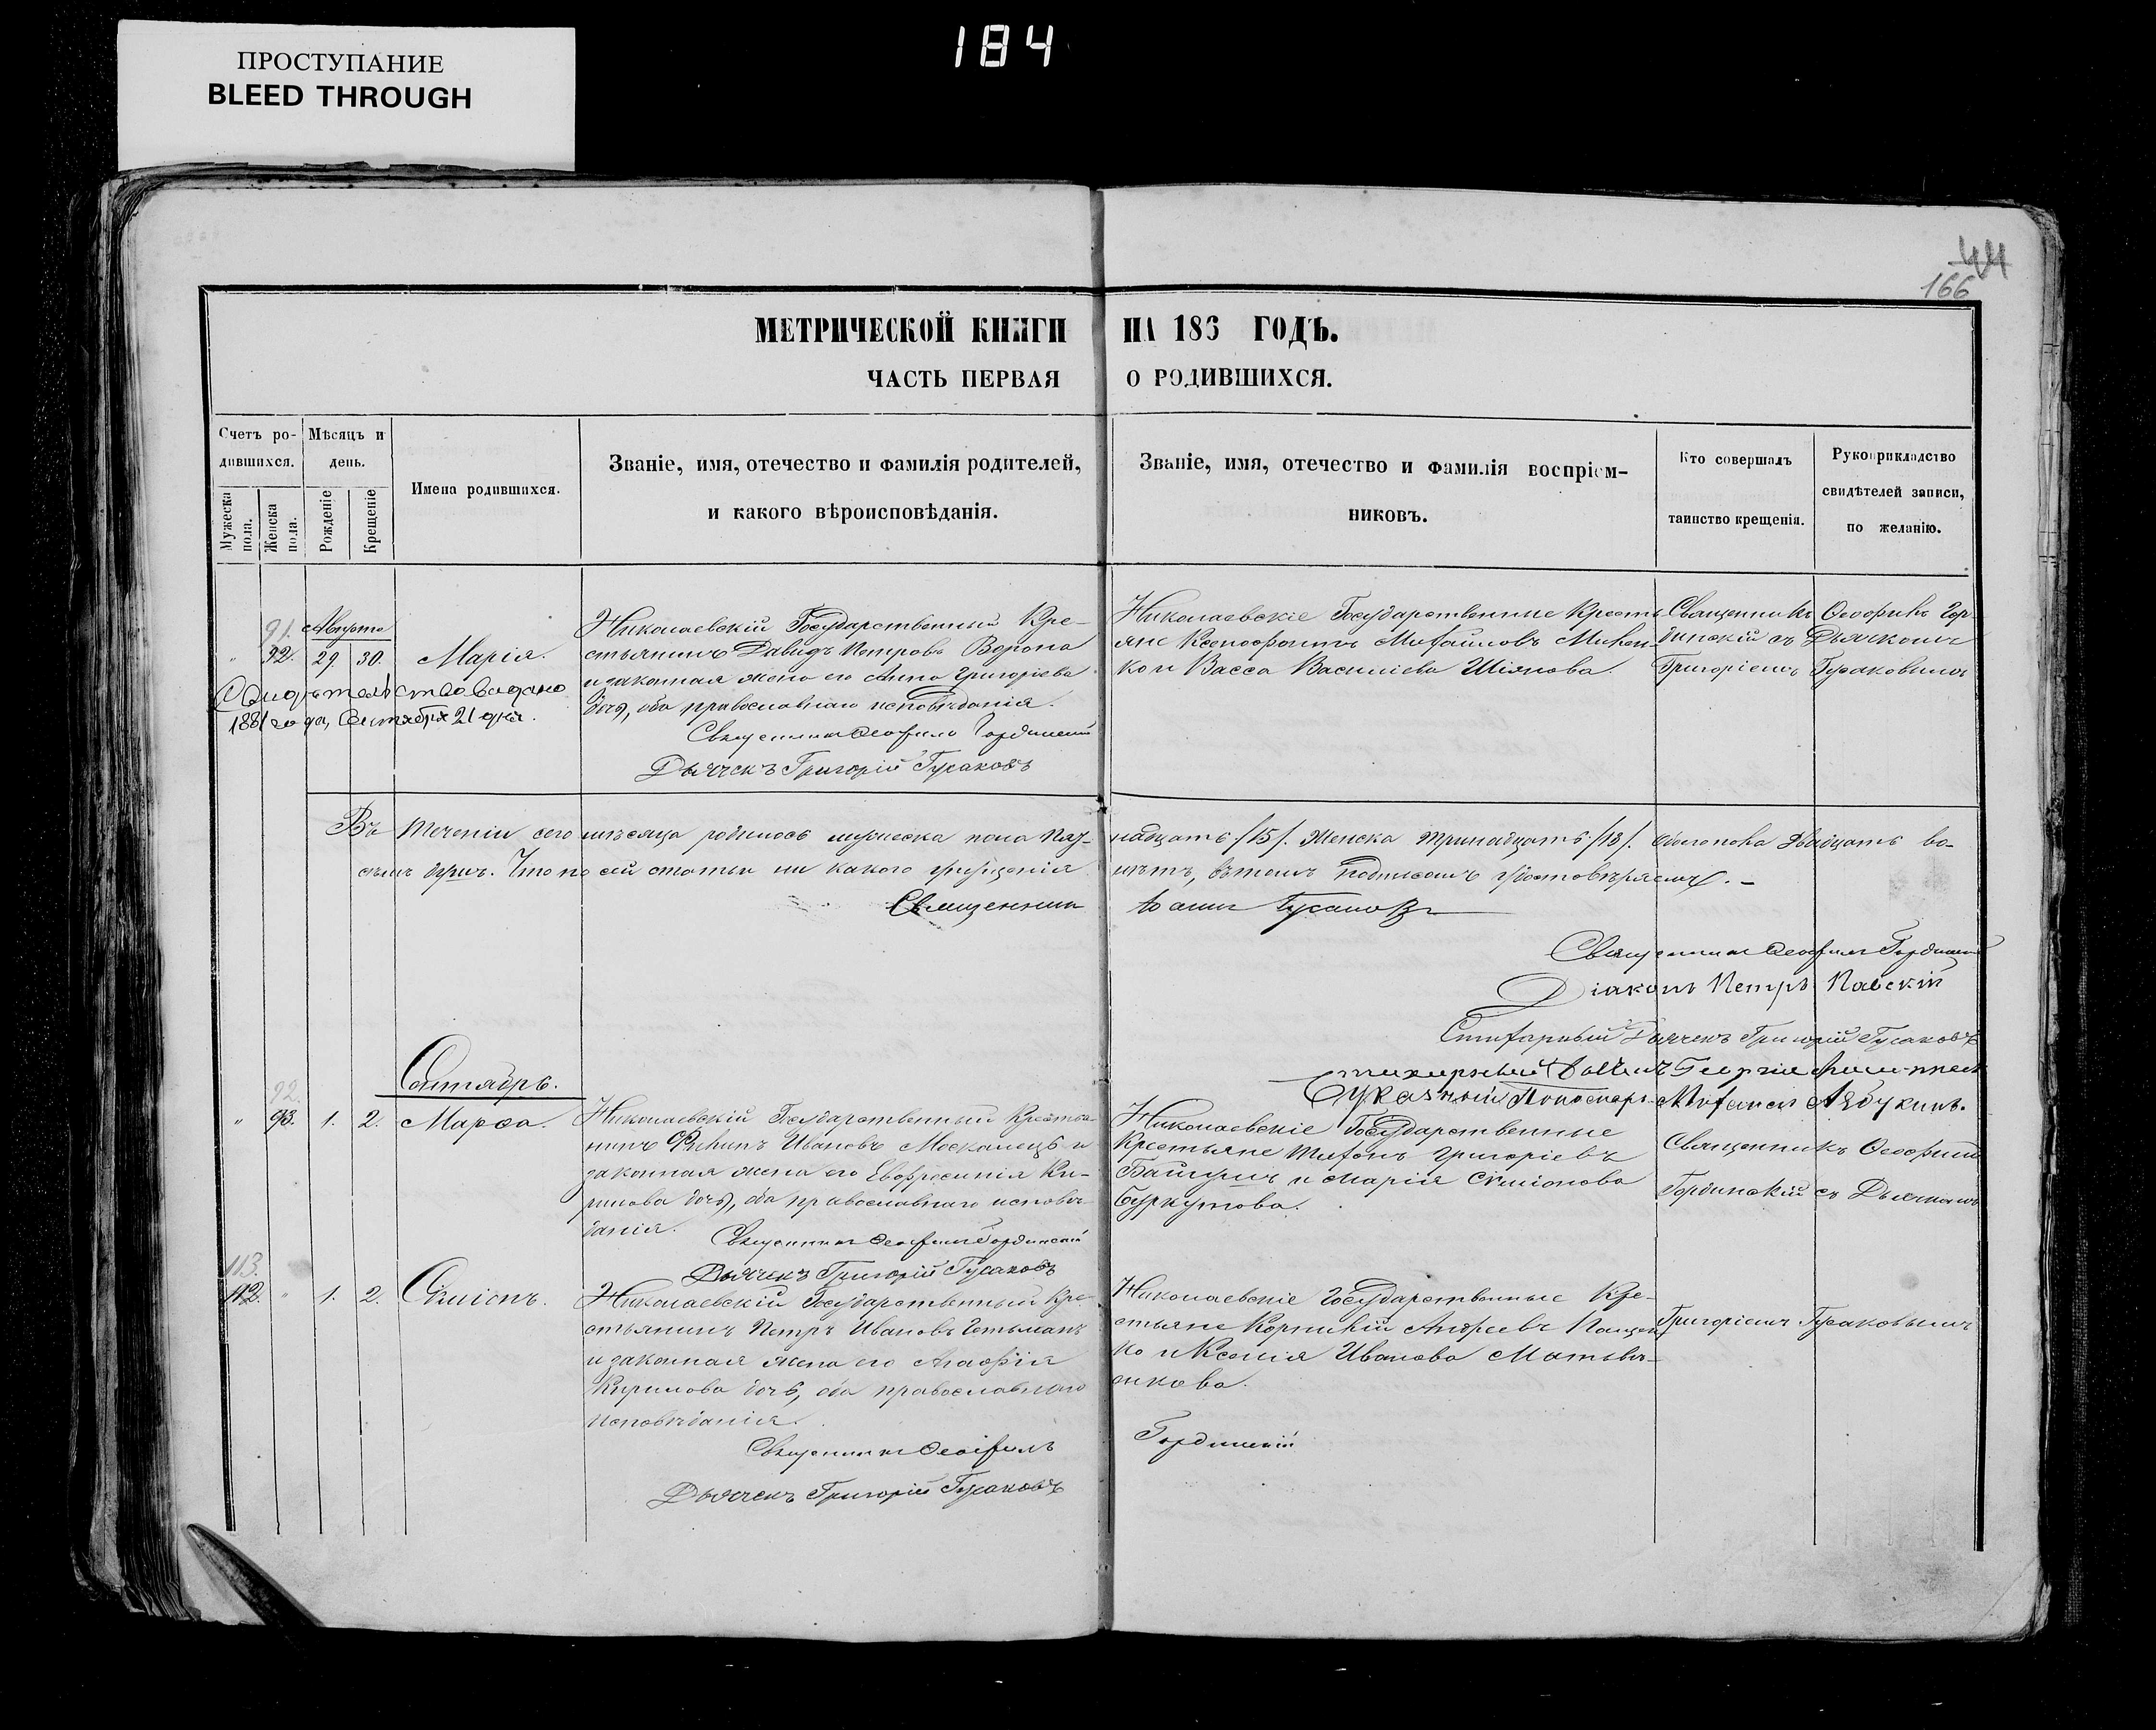 184
ПРОСТУПАНИЕ
BLEED THROUGH
44
166
МЕТРИЧЕСКОЙ КНИГИ НА 186 ГОДЪ.
ЧАСТЬ ПЕРВАЯ О РОДИВШИХСЯ.
Счетъ родившихся.
Мужеска пола.
Женска пола.
Мѣсяцъ и день.
Рожденіе
Крещеніе
Имена родившихся.
Званіе, имя, отечество и фамилія родителей,
и какого вѣроисповѣданія.
Званіе, имя, отечество и фамилія воспріем-
никовъ.
Кто совершалъ
таинство крещенія.
Рукоприкладство
свидѣтелей записи,
по желанію.
91. Августа
" 92. 29. 30. Марія.
Свидѣтельство выдано
1881 года, Сентября 21 дня.
Николаевскій Государственный Кре-
стьянинъ Давидъ Петровъ Ворона
и законная жена его Анна Григоріева
дочь, оба православнаго исповѣданія.
Священникъ Ѳеофилъ Гординскій
Дьячекъ Григорій Гусаковъ
Николаевскіе Государственные Кресть-
яне Ксенофонтъ Михайловъ
ко и Васса Василіева
Священникъ Ѳеофилъ Гор-
динскій съ Дьячкомъ
Григоріемъ Гусаковымъ
Въ теченіи сего мѣсяца родилось мужеска пола пят- надцать /15/. Женска тринадцать /13/. Обоего пола двадцать во-
семь душъ. Что по сей статьи ни какого упущенія нѣтъ, въ томъ подписомъ удостовѣряемъ. –
Священникъ Іоаннъ Гусаковъ
Священникъ Ѳеофилъ Гординскій
Діаконъ Петръ Павскій
Стихарный Дьячекъ Григорій Гусаковъ
Стихарный Георгій
Указный Пономарь Азбукинъ.
Сентябрь.
92.
" 93. 1. 2. Марѳа.
Николаевскій Государственный Крестья-
нинъ Филипъ Ивановъ Москалецъ и
законная жена его Евфросинія Ки-
рилова дочь, оба православнаго исповѣ-
данія.
Священникъ Ѳеофилъ Гординскій
Дьячекъ Григорій Гусаковъ
Николаевскіе Государственные
Крестьяне Григоріевъ
и Марія Симіонова
Буркутова.
Священникъ Ѳеофилъ
Гординскій съ Дьячкомъ
113.
112. " 1. 2. Симіонъ.
Николаевскій Государственный Кре-
стьянинъ Петръ Ивановъ Гетьманъ
и законная жена его Агафія
Кирилова дочь, оба православнаго
исповѣданія.
Священникъ Ѳеофилъ Гординскій
Дьячекъ Григорій Гусаковъ
Николаевскіе Государственные Кре-
стьяне Корнилій Андреевъ
ко и Ксенія Иванова Матвѣ-
Григоріемъ Гусаковымъ